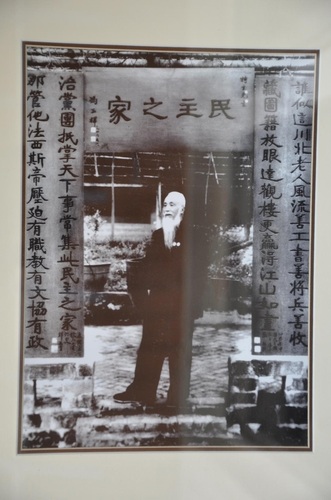 民主之家
馮玉祥
誰似這川北老人風流善工書善將兵善收
藏圖籍放眼達觀樓更贏得江山如畫
那管他法西斯帝壓迫有職教有文協有政
治黨團抵掌天下事常集此民主之家